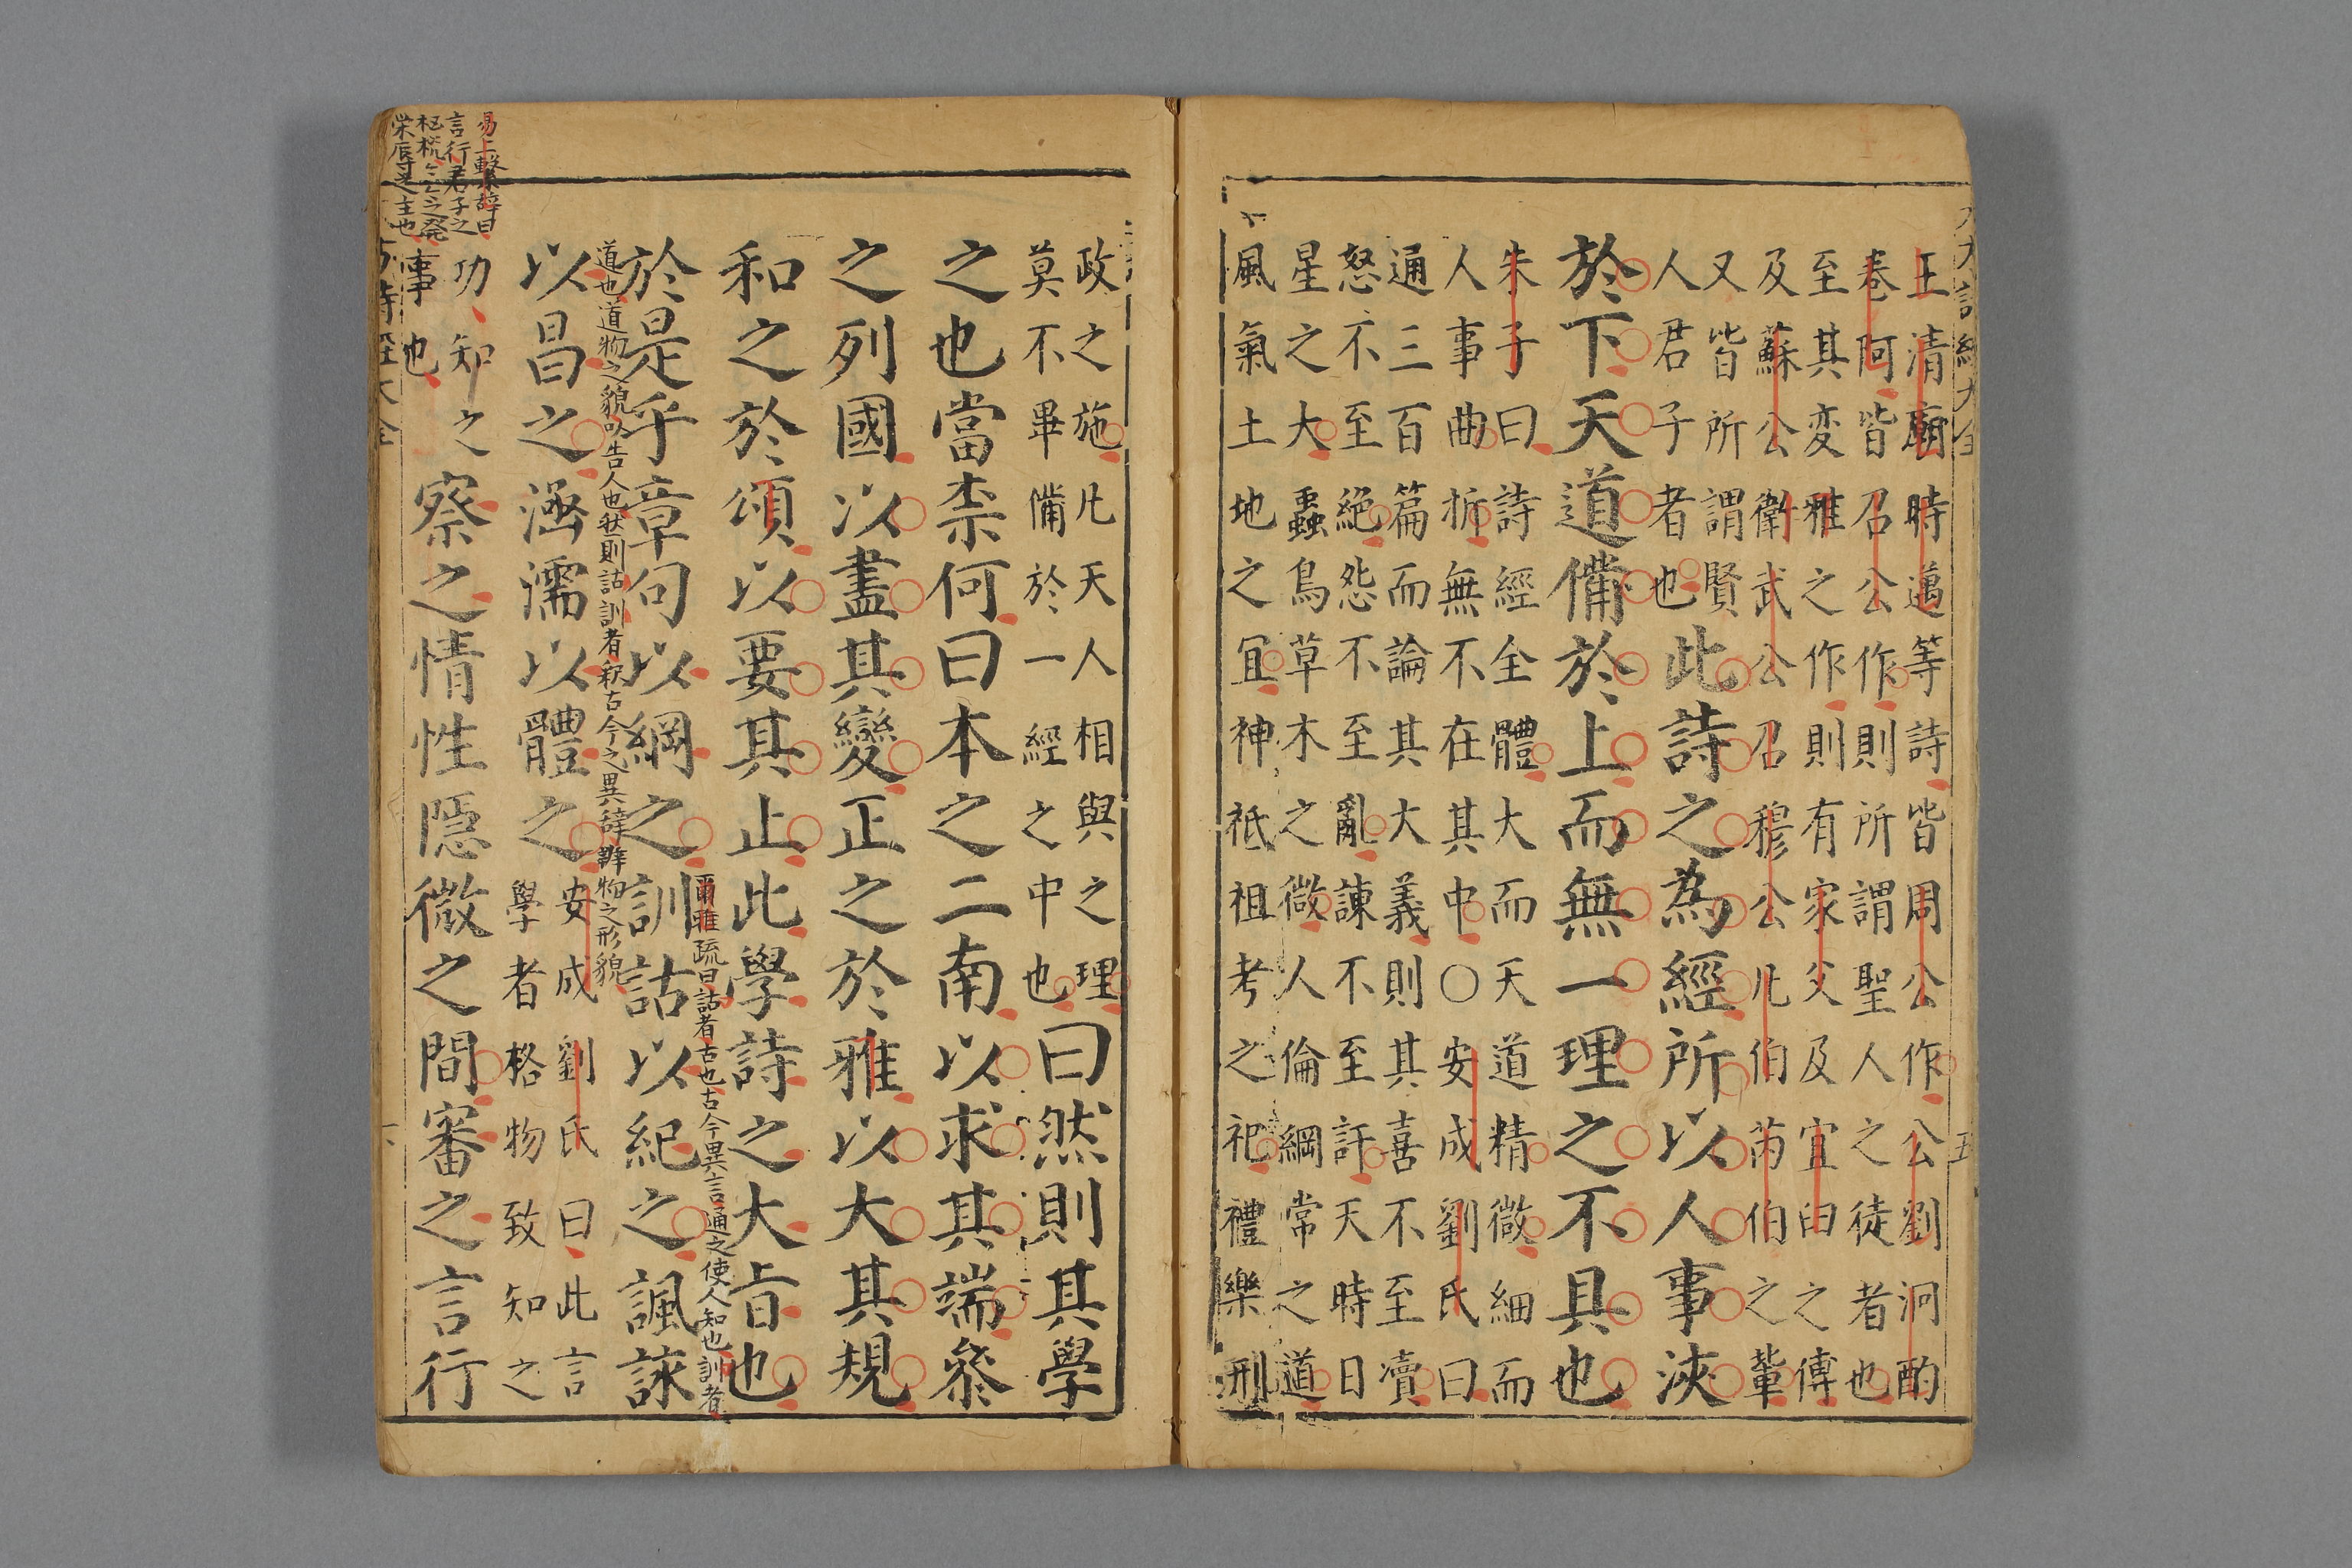 王清廟時邁等詩皆周公作公劉泂酌
卷阿皆召公作則所謂聖人之徒者也
至其変雅之作則有家父及宜臼之傅
及蘇公衛武公召穆公凡伯芮伯之輩
又皆所謂賢
人君子者也
此詩之為經所以人事浹
於下天道備於上而無一理之不具也
朱子曰詩經全體大而天道精微細而
人事曲折無不在其中〇安成劉氏曰
通三百篇而論其大義則其喜不至瀆
怒不至絶怨不至亂諫不至訐天時日
星之大蟲鳥草木之微人倫綱常之道
風氣土地之宜神祗祖考之祀禮樂刑
五
政之施凡天人相與之理
莫不畢備於一經之中也
曰然則其學
之也當柰何曰本之二南以求其端參
之列國以盡其變正之於雅以大其規
和之於頌以要其止此學詩之大旨也
爾雅疏曰詁者古也古今異言通之使人知也訓者
於是乎章句以綱之訓詁以紀之諷詠
道也道物之貌以告人也然則詁訓者釈古今之異辞辨物之形貌
以昌之涵濡以體之
安成劉氏曰此言
學者格物致知之
功知之
事也
察之情性隱微之間審之言行
易上繫辞曰
言行君子之
枢機
之発
栄辱之主也